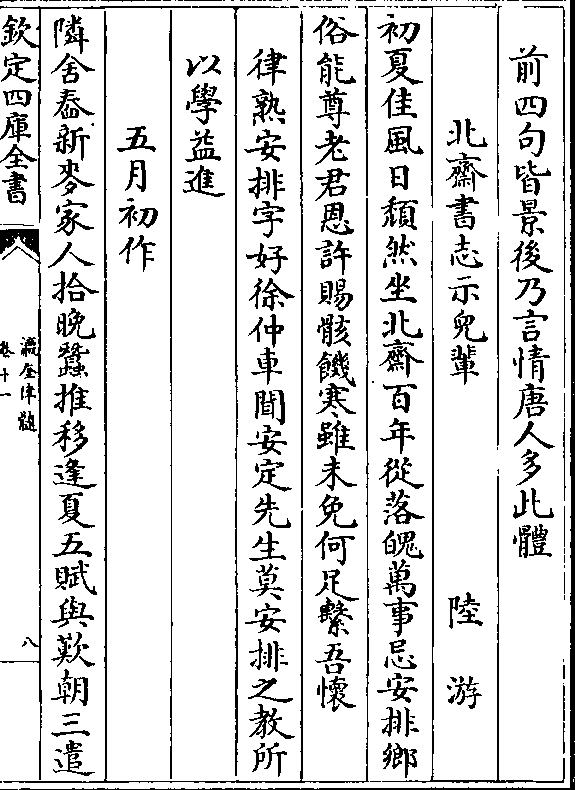 前四句皆景後乃言情唐人多此體
北齋書志示兒輩 陸游
初夏佳風日頹然坐北齋百年從落魄萬事忌安排鄉
俗能尊老君恩許賜骸饑寒雖未免何足繫吾懷
律熟安排字好徐仲車聞安定先生莫安排之教所
以學益進
五月初作
隣舍舂新麥家人拾晚蠶推移逢夏五賦與歎朝三遣
欽定四庫全書
瀛奎律髓
卷十一
八